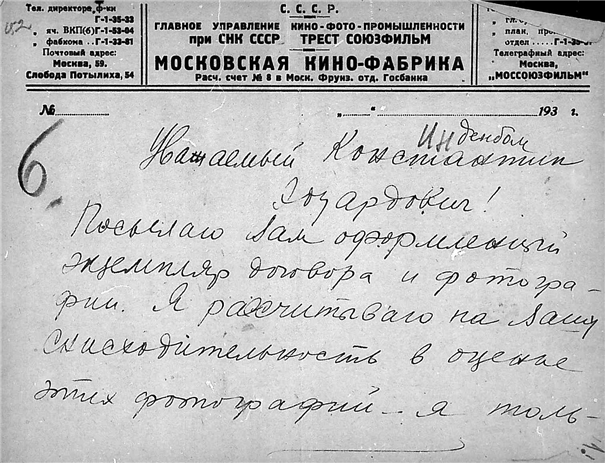 Тел. директоре ф-ки
Г-1-35-33
яч. ВКП(б) Г-1-53-04
фабкома Г-1-33-81
Почтовый адрес:
Москва, 59.
Слобода Потылиха, 54
С. С. С. Р.
ГЛАВНОЕ УПРАВЛЕНИЕ КИНО-ФОТО-ПРОМЫШЛЕННОСТИ
при СНК СССР ТРЕСТ СОЮЗФИЛЬМ
МОСКОВСКАЯ КИНО-ФАБРИКА
Расч. счет № 8 в Моск. Фрунз. отд. Госбанка
гл. б
план. про
отдел Г-1
Телеграфный адрес:
Москва,
"МОССОЮЗФИЛЬМ"
№ „ “ 193 г.
6
Инденбом
Уважаемый Константин
Эдуардович!
Посылаю Вам оформленный
экземпляр договора и фотогра-
фии. Я рассчитываю на Вашу
снисходительность в оценке
этих фотографий – я толь-